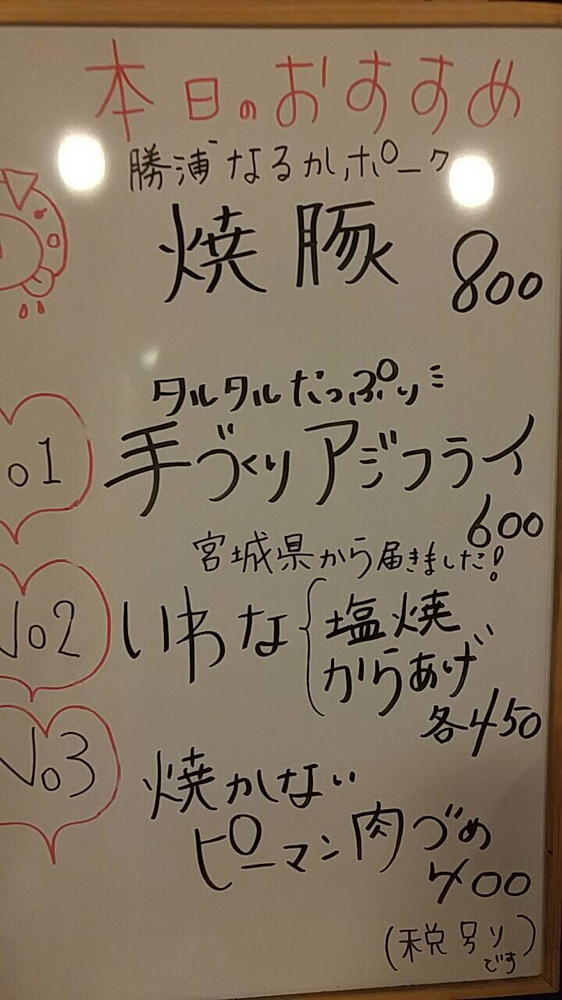 本日のおすすめ
勝浦なるかポーク
焼豚 800
タルタルたっぷり
No1 手づくりアジフライ
600
宮城県から届きました!
No2 いわな 塩焼
からあげ
各450
No3 焼かない
ピーマン肉づめ
400
(税別り
です)